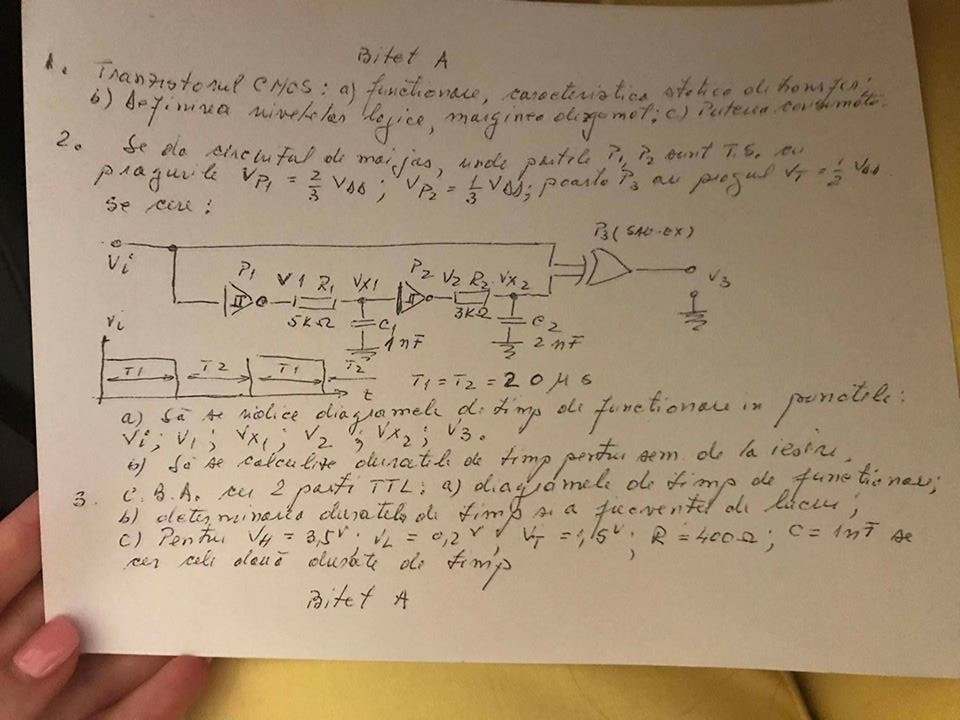 Bilet A
1. Tranzistorul CMOS: a) functionare, caracteristica statica de transfer;
b) Definirea nivelelor logice, marginea de zgomot; c) Puterea consumata.
2. Se da circuitul de mai jos, unde portile P1, P2 sunt T.S. cu
pragurile VP1 = 2/3 VDD; VP2 = 1/3 VDD; poarta P3 au pragul VT = 1/2 VDD
Se cere:
P3 (SAU-EX)
Vi
P1 V1 R1 VX1 P2 V2 R2 VX2
V3
5KΩ
3KΩ
C1
C2
1nF
2nF
Vi
T1 T2 T1 T2
t
T1 = T2 = 20 μs
a) Să se ridice diagramele de timp de functionare in punctele:
Vi; V1; VX1; V2; VX2; V3.
b) Să se calculeze duratele de timp pentru sem. de la iesire.
3. C.B.A. cu 2 porti TTL: a) diagramele de timp de functionare;
b) determinarea duratelor de timp si a frecventei de lucru;
c) Pentru VH = 3,5V; VL = 0,2V; VT = 1,5V; R = 400Ω; C = 1nF se
cer cele două durate de timp
Bilet A